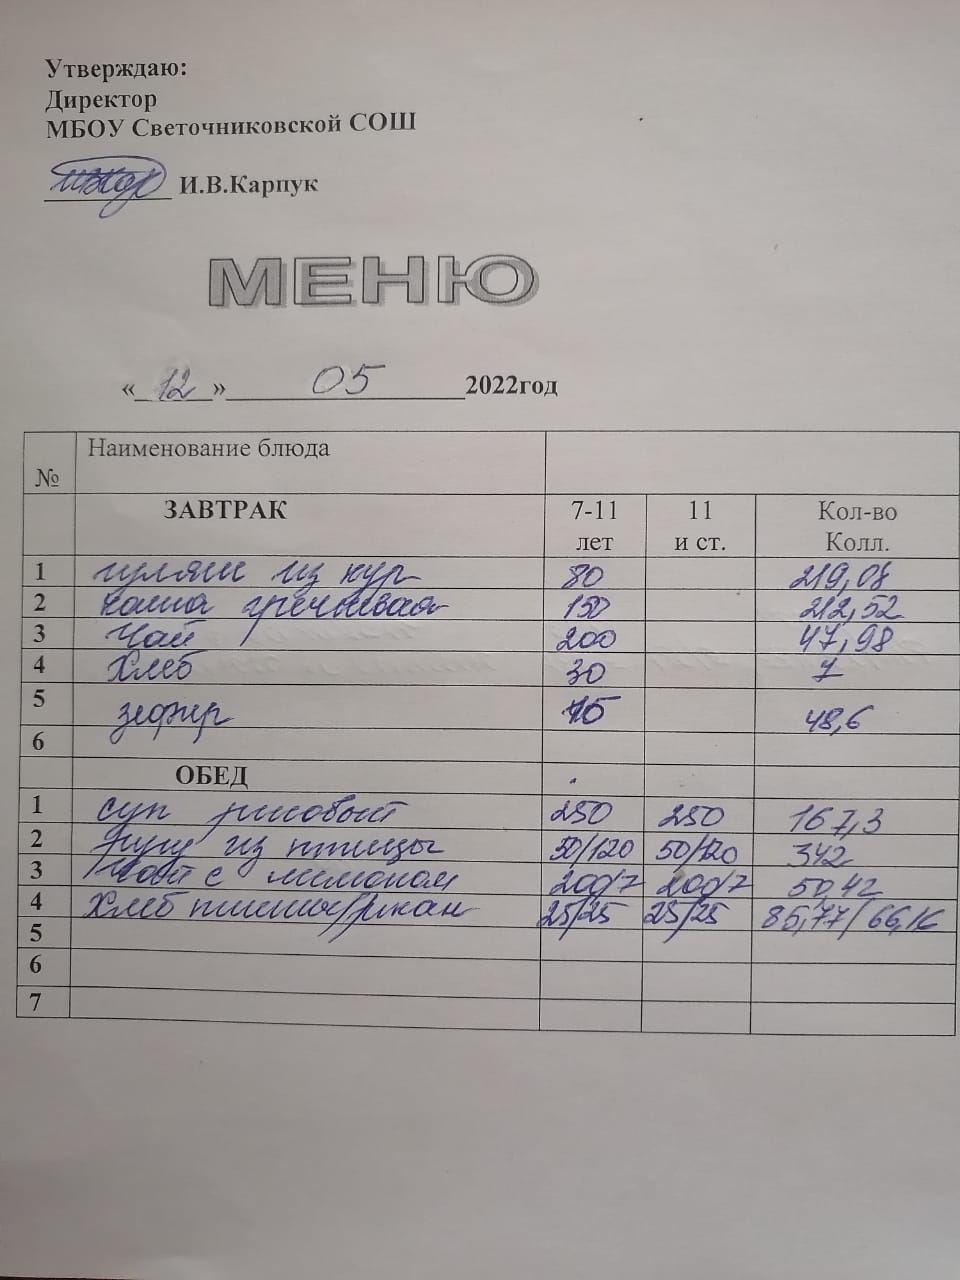 Утверждаю:
Директор
МБОУ Светочниковской СОШ
И.В.Карпук
МЕНЮ
« 12 » 05 2022год
№ Наименование блюда
ЗАВТРАК 7-11 лет 11 и ст. Кол-во Колл.
1 гуляш из кур 80 219,08
2 каша гречневая 150 212,52
3 Чай 200 47,98
4 Хлеб 30 7
5 зефир 15 48,6
6
ОБЕД
1 суп рисовый 250 250 167,3
2 рагу из птицы 50/120 50/120 342
3 Чай с лимоном 200/7 200/7 50,42
4 Хлеб пшенич/ржан 25/25 25/25 85,77/66,16
5
6
7